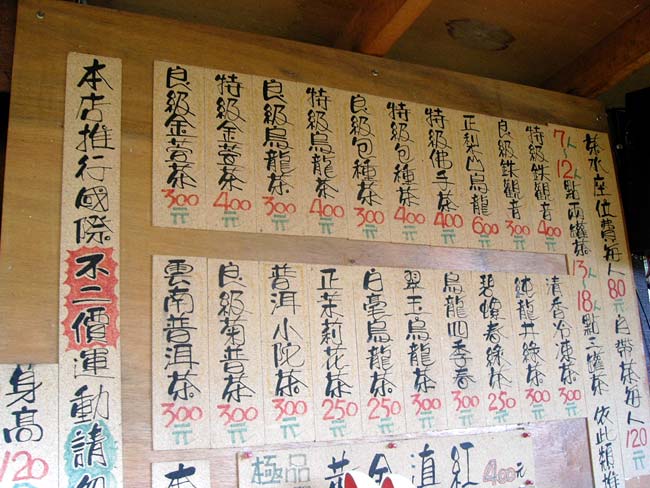 茶水座位費每人80元 自帶茶每人120元
7人~12人點兩罐茶 13人~18人點三罐茶 依此類推
特級鉄觀音400元
良級鉄觀音300元
正梨山烏龍600元
特級佛手茶400元
特級包種茶400元
良級包種茶300元
特級烏龍茶400元
良級烏龍茶300元
特級金萱茶400元
良級金萱茶300元
清香冷凍茶300元
純龍井綠茶300元
碧螺春綠茶250元
烏龍四季春300元
翠玉烏龍茶300元
白毫烏龍茶250元
正茉莉花茶250元
普洱小陀茶300元
良級菊普茶300元
雲南普洱茶300元
極品 黃金滇紅 400元
本
本店推行國際不二價運動請
身高120